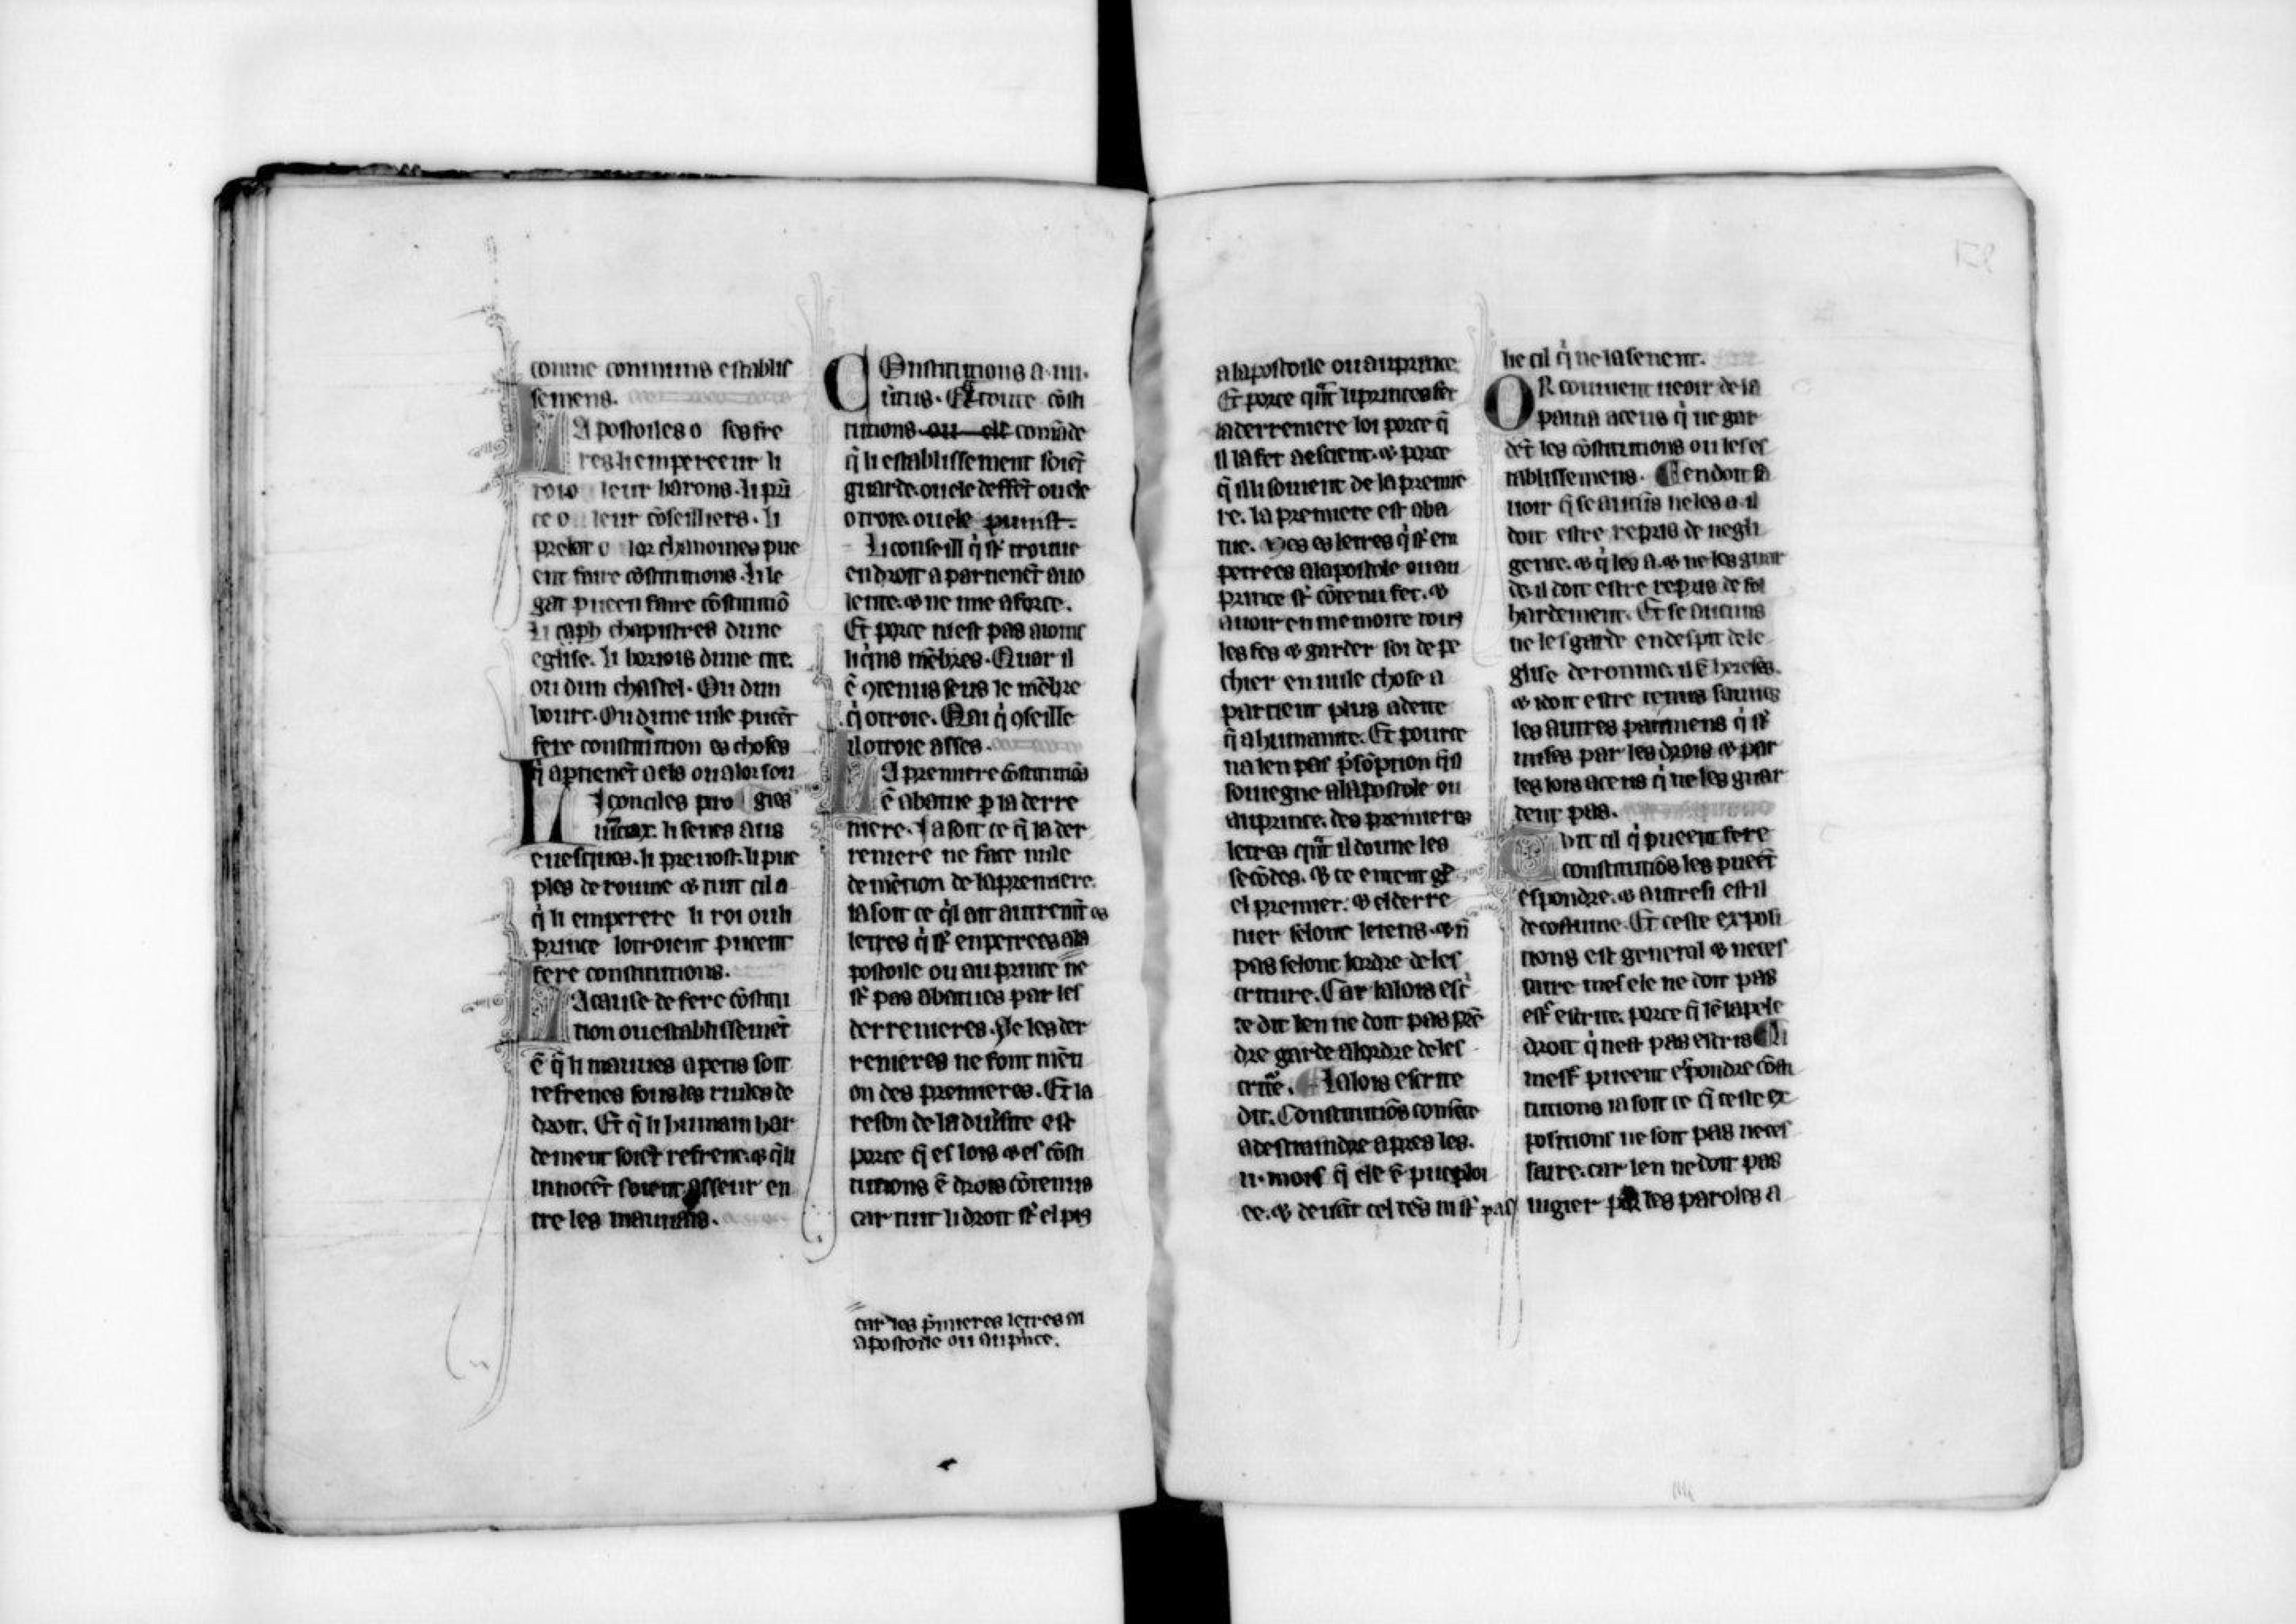 comme communs establis
semens.
LApostoiles o ses fre
res li empereeur li
rois o leur barons. li prī
ce o leur cōseilliers. li
prelat o lor chanoines pue
ent faire cōstitutions. Li le
gat pueen faire cōstitutiō
Li caph chapitres dune
eglise. li boriois dune cite.
ou dun chastel. Ou dun
bourc. Ou dune uile pueēt
fere constitution es choses
q̇ aptienēt a els ou a lor
LI conciles pro
li senes aus
euesques. li preuost. li pue
ples de roume ⁊ tuit cil a
q̇ li emperere li roi ou li
prince lotroient pueent
fere constitutions.
LA cause de fere cōstitu
tion ou establissemēt
ē q̄ li mauues apetis soit
refrenes sous les riules de
droit. Et q̄ li humain har
dement soiēt refrene. ⁊ q̄ li
innocēt soient asseur en
tre les mauuais.
COnstitutions a .iiii.
uertus. Et toute cōsti
tutions ou ele comāde
q̄ li establissement soiēt
guarde. ou ele deffēt ou ele
otroie. ou ele punist.
Li conseill q̇ st̄ trouue
en droit apartienēt a uo
lente. ⁊ ne mie a force.
Et porce niest pas nome
li qīns mēbres. Quar il
ē ꝯtenus seus le mēbre
q̇ otroie. Qui q̇ ꝯseille
il otroie asses.
LA premiere cōstitutiōs
ē abatue p̱ la derre
niere. Ja soit ce q̄ la der
reniere ne face nule
de mētion de la premiere.
ia soit ce q̇l ait autremēt es
letres q̇ st̄ enpetrees a la
postoile ou au prince ne
st̄ pas abatues par les
derrenieres. Se les der
renieres ne font mēti
on des premieres. Et la
reson de la diuersite est
porce q̄ es lois ⁊ es cōsti
tutions ē drois cōtenus
car tuit li droit st̄ el pis
car les p̱mieres letres a
apostoile ou au pince.
a lapostoile ou au prince
Et porce qn̄t li princes fet
la derreniere loi porce q̄
il la fet a escient. ⁊ porce
q̄ il li souient de la premie
re. la premiere est aba
tue. Mes es letres q̇ st̄ em
petrees a lapostole ou au
prince st̄ cōtenu fet. ⁊
auoir en memoire tous
les fes ⁊ garder soi de pe
chier en nule chose a
partient plus a deite
q̄ a humanite. Et pource
na len pas p̱sōption q̄l
souiegne a lapostole ou
au prince. des premieres
letres qn̄t il doune les
secōdes. ⁊ ce entent
el premier. ⁊ el derre
nier selonc le tens. ⁊ n̄
pas selonc lordre de les
criture. Car la lois escri
te dit len ne doit pas prē
dre garde a lordre de les
criture. La lois escrite
dit. Constitutiōs comēce
a destraindre apres les.
.ii. mois q̄ ele ē pueploi
ee. ⁊ deuāt cel tēs ni st̄ pas
lie cil q̇ ne la seuent.
OR couuient ueoir de la
paina a ceus q̇ ne gar
dēt les cōstitutions ou les es
tablissemens. Len doit sa
uoir q̄ se aucūs ne les a il
doit estre repris de negli
gence. ⁊ q̇ les a. ⁊ ne les guar
de. il doit estre repris de fol
hardement. Et se aucuns
ne les garde en despit de le
glise de roume. il ē hereses.
⁊ doit estre tenus saunes
les autres painnens q̇ st̄
mises par les drois ⁊ par
les lois a ceus q̇ ne les guar
dent pas.
TUit cil q̇ pueent fere
constitutiōs les pueēt
espondre. ⁊ autresi est il
de costume. Et ceste exposi
tions est general ⁊ neces
saire mes ele ne doit pas
est̄ escrite. porce q̄ lē lapele
droit q̇ nest pas escris Li
mest̄ pueent espondre cōsti
tutions ia soit ce q̄ ceste ex
positions ne soit pas neces
saire. car len ne doit pas
iugier par les paroles a